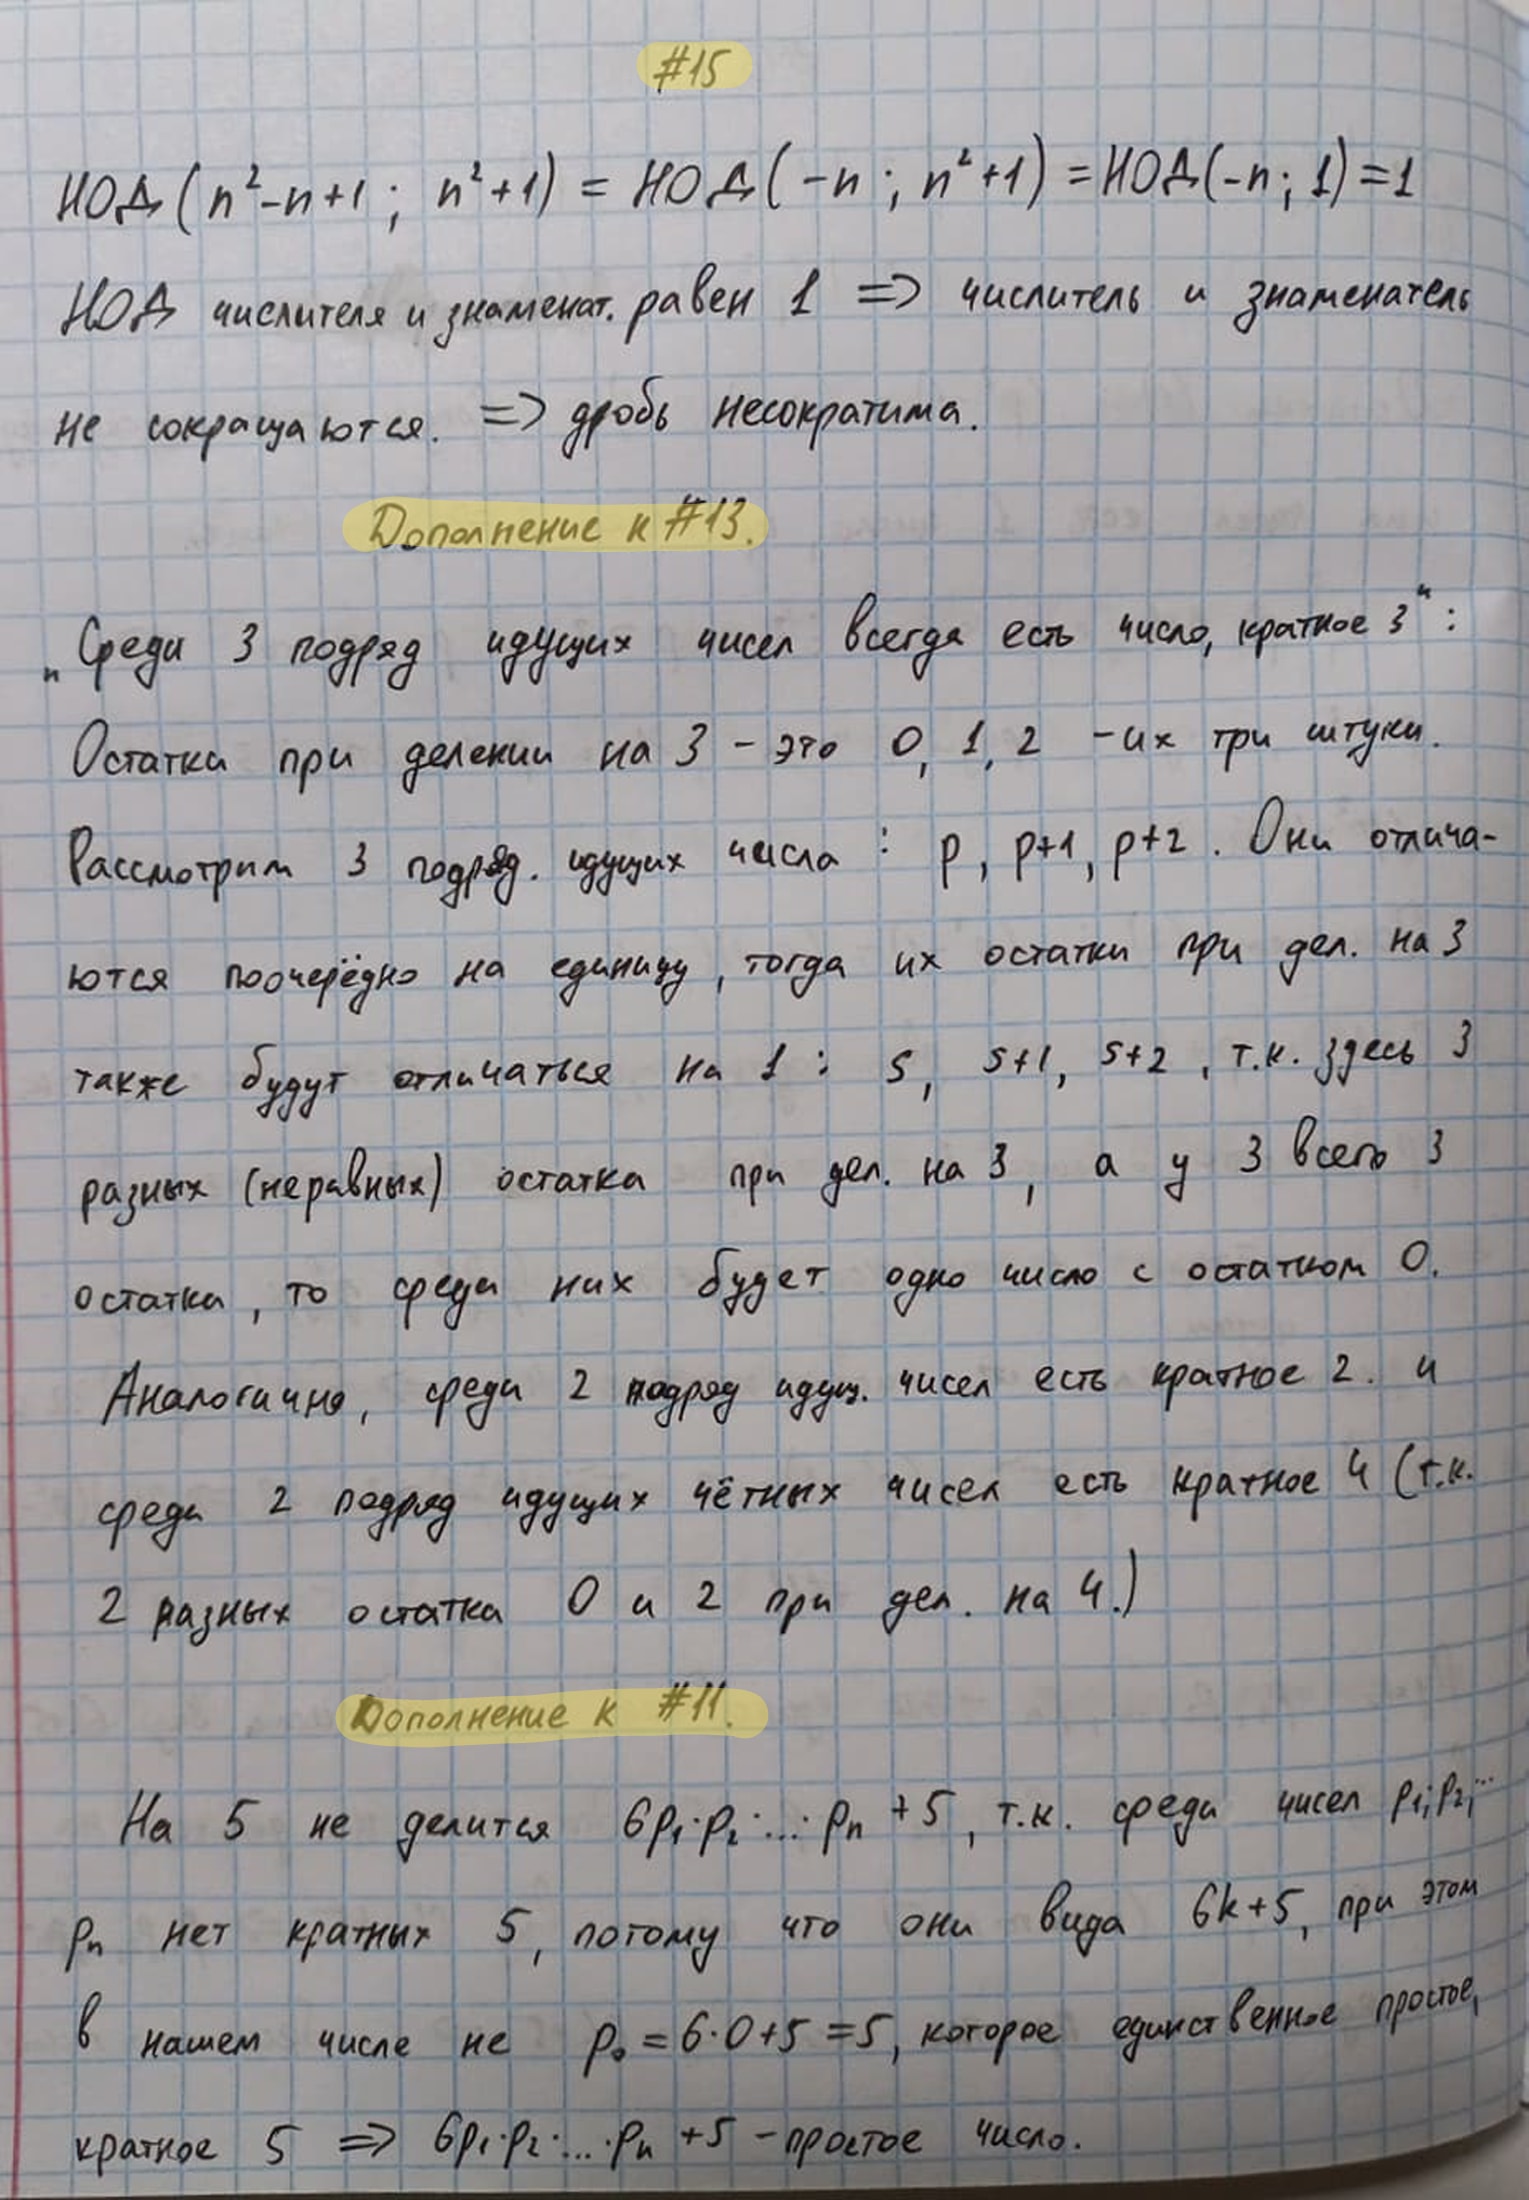 #15
НОД(n²-n+1; n²+1) = НОД(-n; n²+1) = НОД(-n; 1) = 1
НОД числителя и знаменат. равен 1 => числитель и знаменатель
не сокращаются. => дробь несократима.
Дополнение к #13.
„Среди 3 подряд идущих чисел всегда есть число, кратное 3“:
Остатки при делении на 3 - это 0, 1, 2 - их три штуки.
Рассмотрим 3 подряд. идущих числа: p, p+1, p+2. Они отлича-
ются поочерёдно на единицу, тогда их остатки при дел. на 3
также будут отличаться на 1: s, s+1, s+2, т.к. здесь 3
разных (неравных) остатка при дел. на 3, а у 3 всего 3
остатка, то среди них будет одно число с остатком 0.
Аналогично, среди 2 подряд идущ. чисел есть кратное 2. и
среди 2 подряд идущих чётных чисел есть кратное 4 (т.к.
2 разных остатка 0 и 2 при дел. на 4.)
Дополнение к #11.
На 5 не делится 6p₁·p₂·...·pₙ+5, т.к. среди чисел p₁; p₂; ...
pₙ нет кратных 5, потому что они вида 6k+5, при этом
в нашем числе не p₀ = 6·0+5 = 5, которое единственное простое,
кратное 5 => 6p₁·p₂·...·pₙ+5 - простое число.